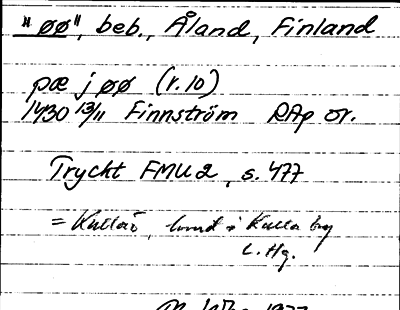 "øø", beb., Åland, Finland
pæ j øø (r. 10)
1430 13/11 Finnström RAp or.
Tryckt FMU 2, s. 477
= Kallaö, i Kalla by
L. Hg.